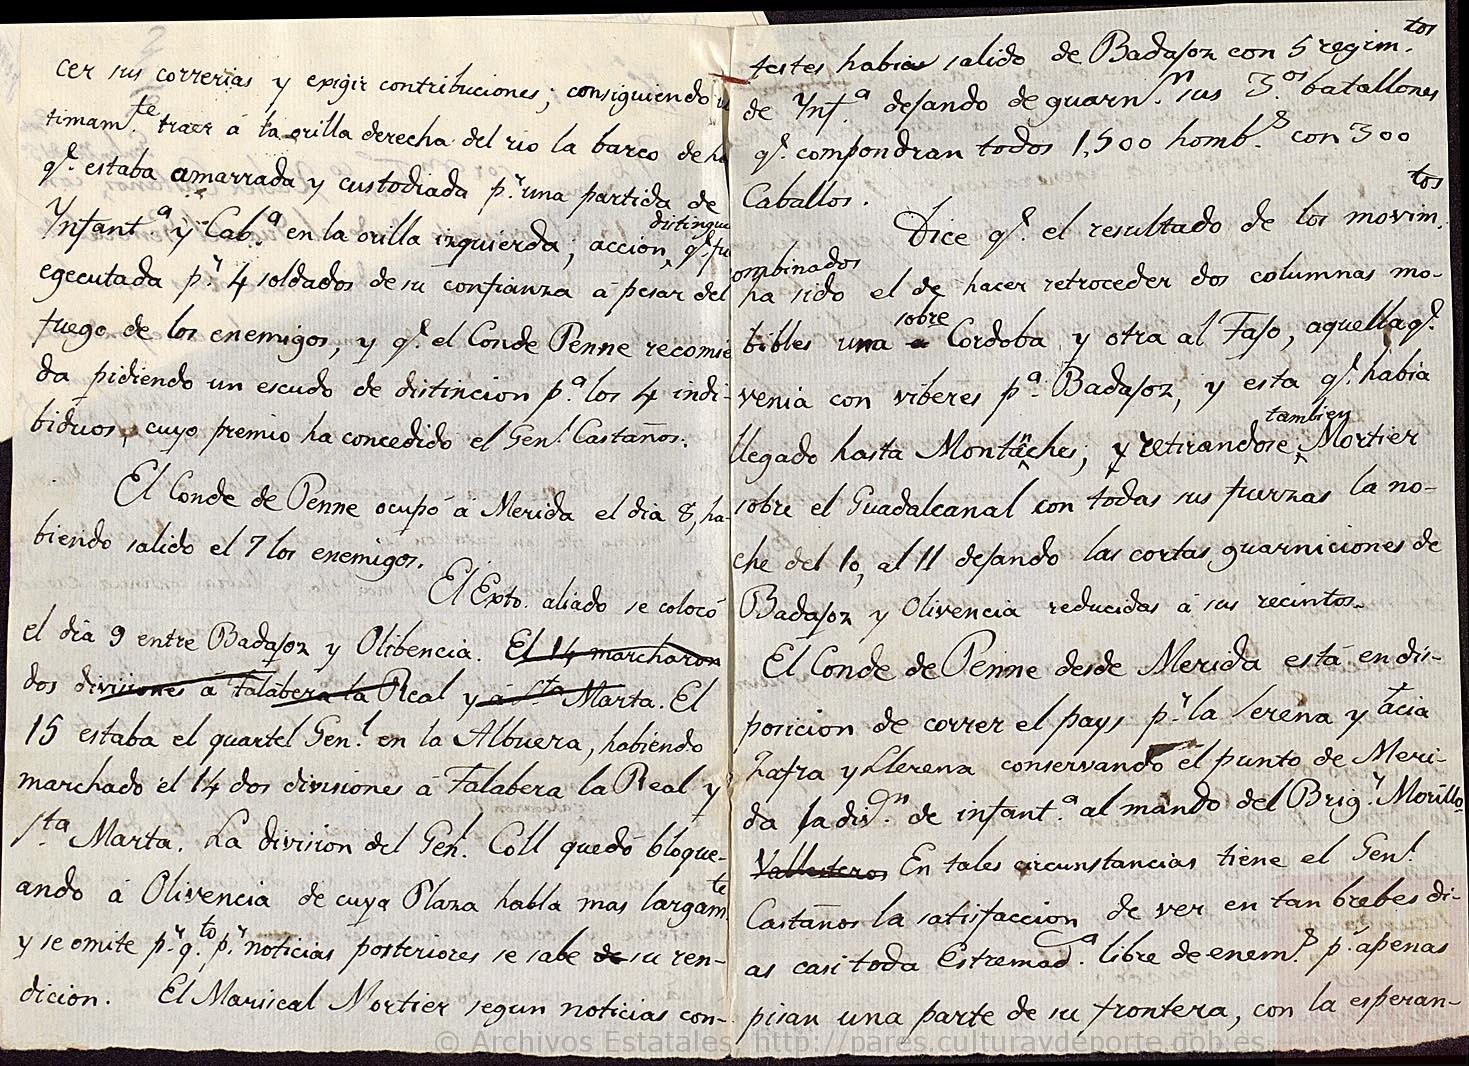 cer sus correrias y exigir contribuciones; consiguiendo ul
timam.te traer á la orilla derecha del rio la barca de ha
q.e estaba amarrada y custodiada p.r una partida de
Ynfant.a y Cab.a en la orilla izquierda; accion distingui q.e fu
egecutada p.r 4 soldados de su confianza á pesar del
fuego de los enemigos, y q.e el Conde Penne recomie
da pidiendo un escudo de distincion p.a los 4 indi-
biduos, cuyo premio ha concedido el Gen.l Castaños.
El Conde de Penne ocupó á Merida el dia 8, ha-
biendo salido el 7 los enemigos.
El Exto. aliado se colocó
el dia 9 entre Badajoz y Olibencia. El 14 marcharon
dos divisiones á Talabera la Real y á Sta Marta. El
15 estaba el quartel Gen.l en la Albuera, habiendo
marchado el 14 dos divisiones á Talabera la Real y
Sta Marta. La division del Gen.l Coll quedó bloque-
ando á Olivencia de cuya Plaza habla mas largam.te
y se omite p.r q.to p.r noticias posteriores se sabe de su ren-
dicion. El Mariscal Mortier segun noticias con-
testes habia salido de Badajoz con 5 regim.tos
de Ynf.a dejando de guarn.n sus 3.os batallones
q.e compondran todos 1,500 homb.s con 300
Caballos.
Dice q.e el resultado de los movim.tos
ombinados
ha sido el de hacer retroceder dos columnas mo-
bibles una sobre Cordoba y otra al Tajo, aquella q.e
venia con viberes p.a Badajoz, y esta q.e habia
llegado hasta Montanches; y retirandose tambien Mortier
sobre el Guadalcanal con todas sus fuerzas la no-
che del 10, al 11 dejando las cortas guarniciones de
Badajoz y Olivencia reducidas á sus recintos.
El Conde de Penne desde Merida está en dis-
posicion de correr el pays p.r la Serena y acia
Zafra y Llerena conservando el punto de Meri-
da la div.n de infant.a al mando del Brig.r Morillo.
Vallesteros En tales circunstancias tiene el Gen.l
Castaños la satisfaccion de ver en tan brebes di-
as casi toda Estremad.a libre de enem.s p.s apenas
pisan una parte de su frontera, con la esperan-
© Archivos Estatales, http://pares.culturaydeporte.gob.es